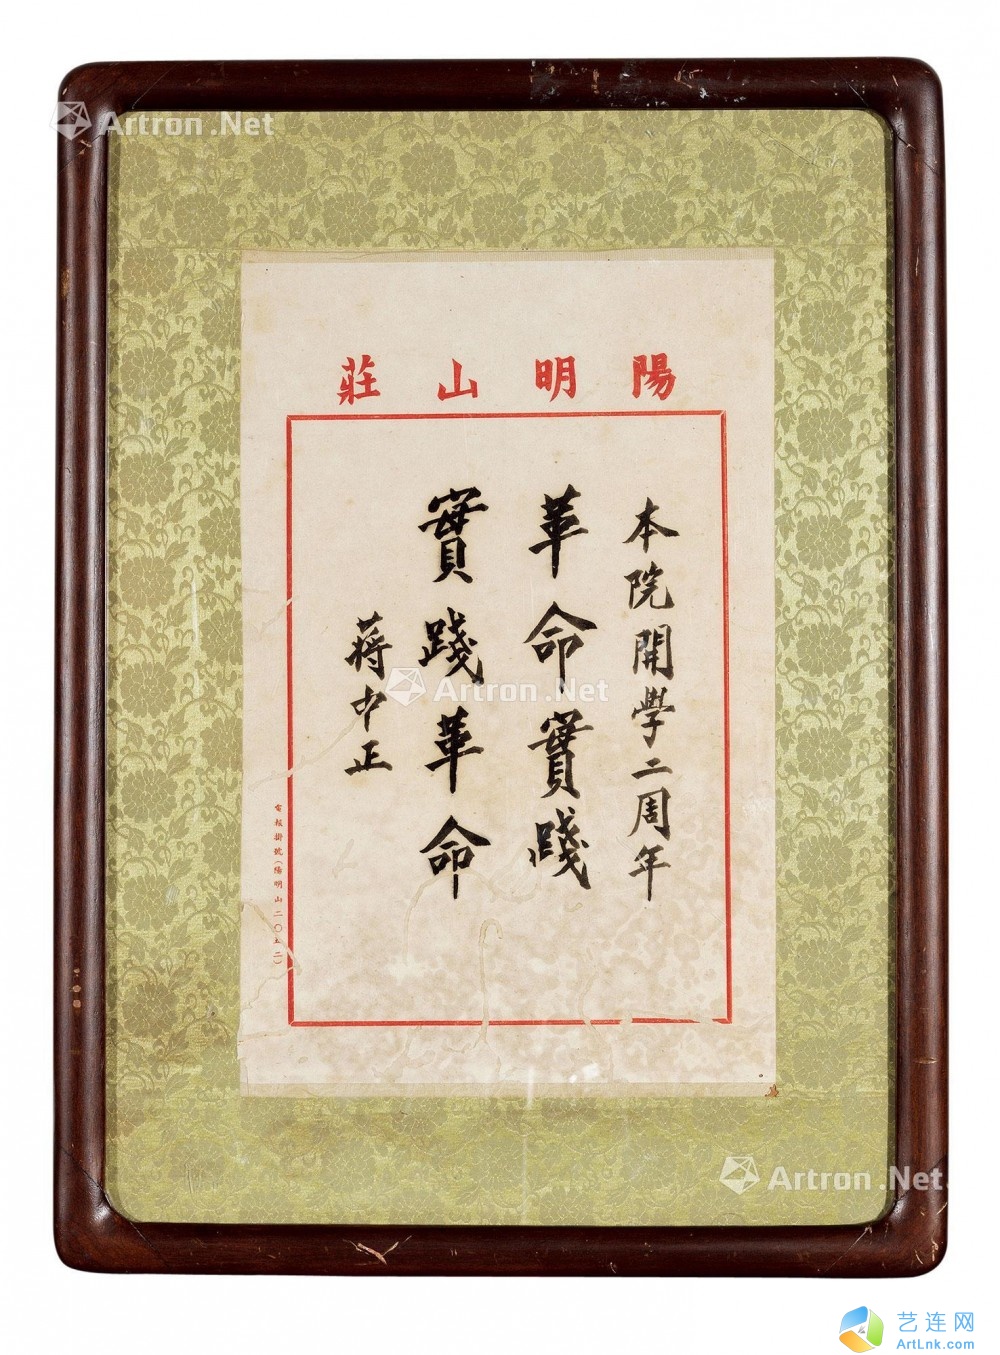 陽明山莊
本院開學二周年
革命實踐
實踐革命
蔣中正
電報掛號(陽明山二〇五二)
Artron.Net
Artron.Net
Artron.Net
艺连网
ArtLnk.com